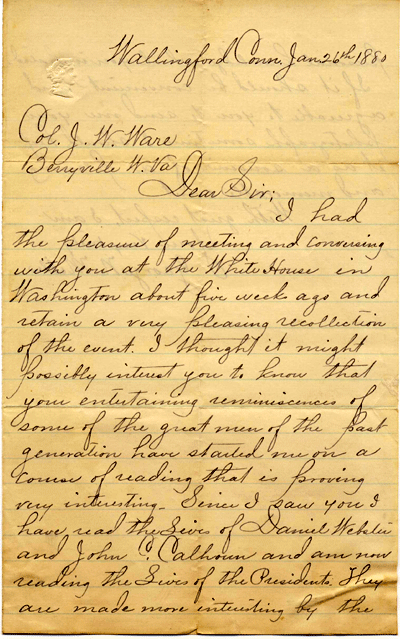 Wallingford Conn. Jan. 26th 1880
Col. J. W. Ware
Berryville W. Va
Dear Sir;
I had
the pleasure of meeting and conversing
with you at the White House in
Washington about five weeks ago and
retain a very pleasing recollection
of the event. I thought it might
possibly interest you to know that
your entertaining reminiscences of
some of the great men of the past
generation have started me on a
course of reading that is proving
very interesting. Since I saw you I
have read the Lives of Daniel Webster
and John C. Calhoun and am now
reading the Lives of the Presidents. They
are made more interesting by the